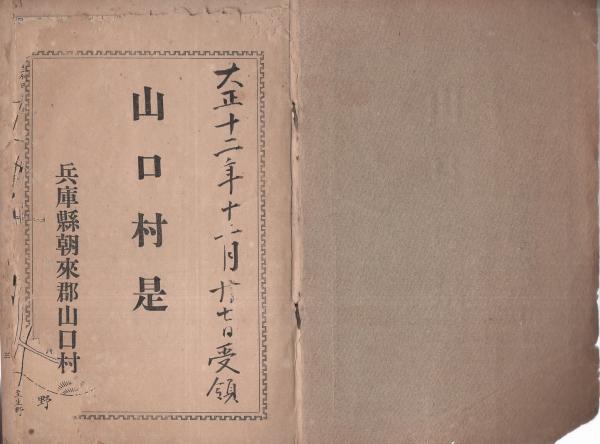 大正十二年十一月廿七日受領
山口村是
兵庫縣朝來郡山口村
野
至生野
八
三